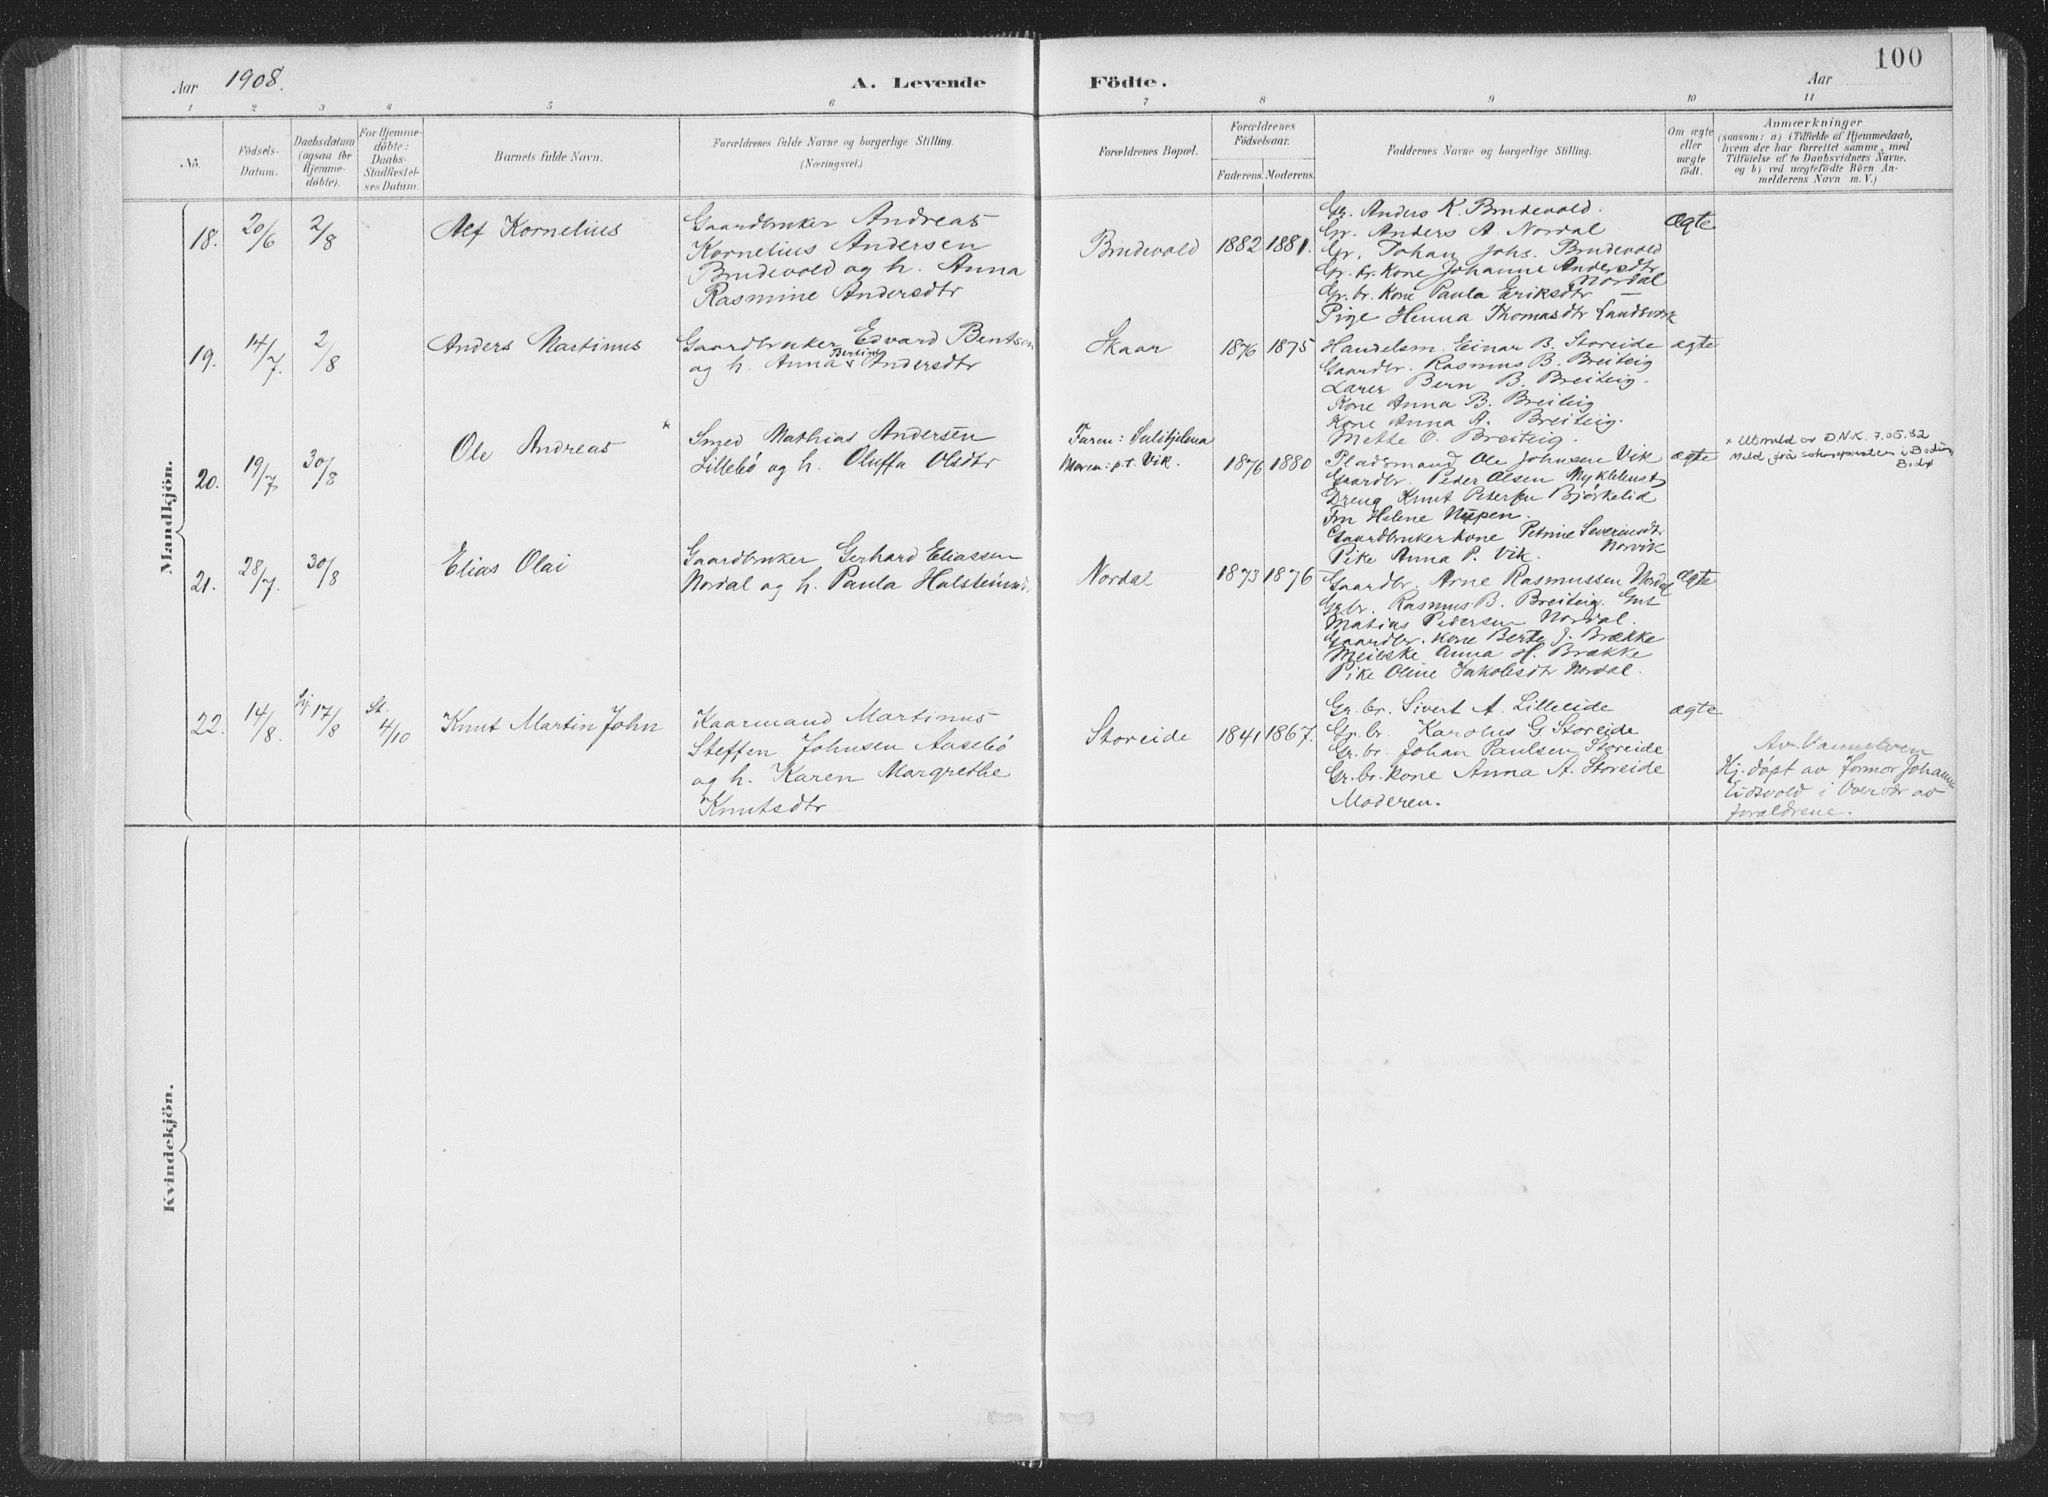 100
Aar 1908. A. Levende Födte. Aar
1 2 3 4 5 6 7 8 9 10 11
No.
Födsels-
Datum.
Daabsdatum
(ogsaa for
Hjemme-
döbte).
For Hjemme-
döbte:
Daabs-
Stadfestel-
ses Datum.
Barnets fulde Navn.
Forældrenes fulde Navne og borgerlige Stilling.
(Næringsvei.)
Forældrenes Bopæl.
Forældrenes
Födselsaar.
Faderens. Moderens.
Faddernes Navne og borgerlige Stilling.
Om ægte
eller
uægte
födt.
Anmærkninger
(saasom: a) i Tilfælde af Hjemmedaab,
hvem der har forrettet samme, med
Tilföielse af to Daabsvidners Navne,
og b) ved uægtefödte Börn An-
melderens Navn m. V.)
Mandkjön.
18. 20/6 2/8 Alf Kornelius
Gaardbruker Andreas
Kornelius Andersen
Brudevold og h. Anna
Rasmine Andersdtr
Brudevold 1882 1881.
Gr. Anders K. Brudevold.
Gr. Anders A. Nordal
Gr. Johan Johs. Brudevold
Gr. br. Kone Johanne Andersdtr
Nordal
Gr. br. Kone Paula Eriksdtr —
Pige Henna Thomasdtr Landsverk
Ægte
19. 14/7. 2/8 Anders Martinus
Gaardbruker Edvard Bentsen
og h. Anna Bertine Andersdtr
Skaar 1876 1875
Handelsm. Einar B. Storeide
Gaardbr. Rasmus B. Breiteig
Lærer Bern B. Breiteig.
Kone Anna B. Breiteig
Kone Anna A. Breiteig.
Mette O. Breiteig.
ægte
20. 19/7 30/8 Ole Andreas x
Smed Mathias Andersen
Lillebö og h. Oluffa Olsdtr
Faren: Sulitjelma
Moren: p.t. Vik. 1876 1880
Pladsmand Ole Johnsen Vik
Gaardbr. Peder Olsen Myklebust
Dreng Knut Petersen Bjørkelid
Fru Helene Nupen.
Gaardbrukerkone Petrine Severinsdtr
Norvik
Pike Anna P. Vik.
ægte
x Utmeldt av D.N.K. 7.05.82
Meld. frå soknepresten i Bodin,
Bodø
21. 28/7. 30/8 Elias Olai
Gaardbruker Gerhard Eliassen
Nordal og h. Paula Halsteinsdtr.
Nordal 1873 1876
Gaardbr. Arne Rasmussen Nordal
Gr. br. Rasmus B. Breiteig. Gut
Matias Pedersen Nordal.
Gaardbr. kone Berte J. Brække
Meieske Anna H. Brække
Pike Oline Jakobsdtr Nordal.
Ægte
22. 14/8. Hj. 17/8 St. 4/10 Knut Martin John
Kaarmand Martinus
Steffen Johnsen Aasebö
og h. Karen Margrethe
Knutsdtr
Storeide 1841 1867.
Gr. br. Sivert A. Lilleeide
Gr. br. Karolus G Storeide
Gr. br. Johan Paulsen Storeide
Gr. br. kone Anna A. Storeide
Moderen.
ægte
Av Vannelven
Hj. døpt av formor Johanne
Eidsvold i Overvær av
forældrene.
Kvindekjön.